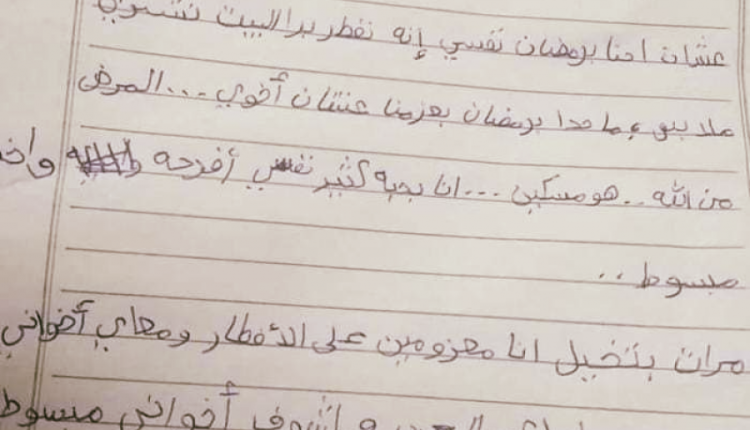 عشان احنا برمضان نفسي إنه نفطر برا البيت نشتري
ملابس وما حدا برمضان بعزمنا عشان أخوي ... المرض
من الله .. هو مسكين ... انا بحبه كثير نفسي أفرحه
مبسوط ..
مرات بتخيل انا معزومين على الافطار ومعاي أخواني
أشوف أخواني مبسوط